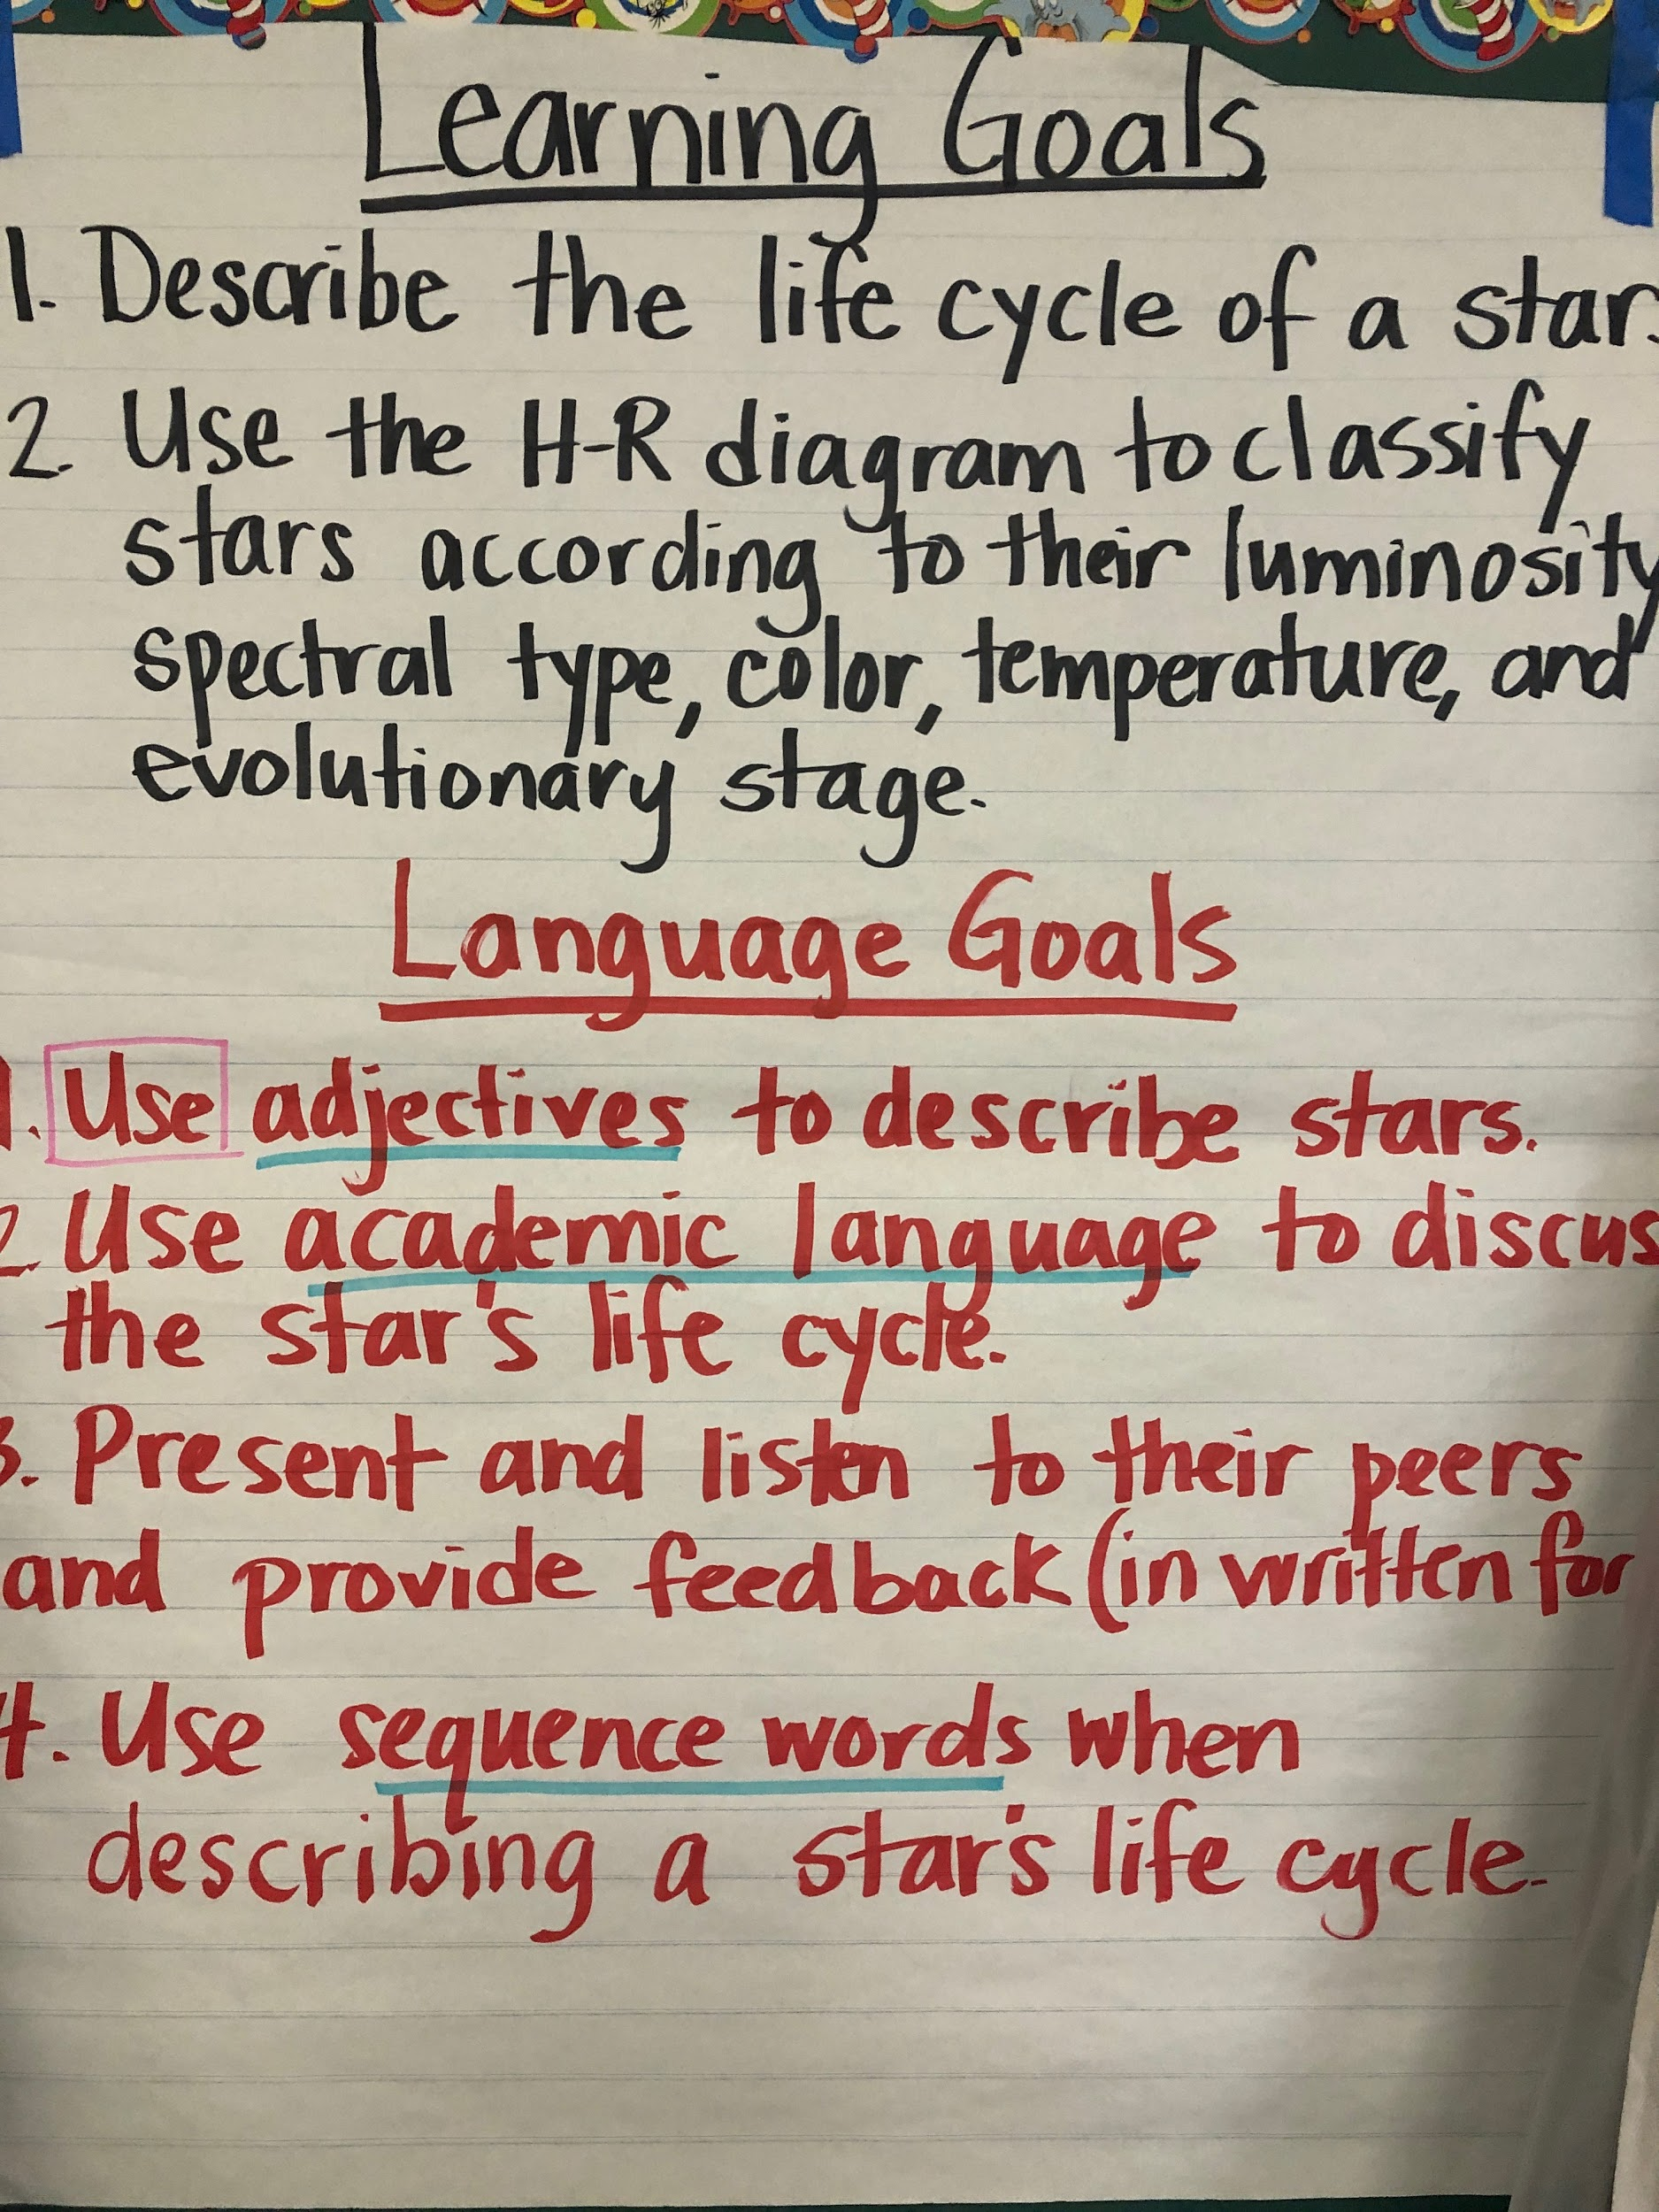 Learning Goals
1. Describe the life cycle of a star.
2. Use the H-R diagram to classify
stars according to their luminosity
spectral type, color, temperature, and
evolutionary stage.
Language Goals
1. Use adjectives to describe stars.
2. Use academic language to discus
the star's life cycle.
3. Present and listen to their peers
and provide feedback (in written for
4. Use sequence words when
describing a star's life cycle.